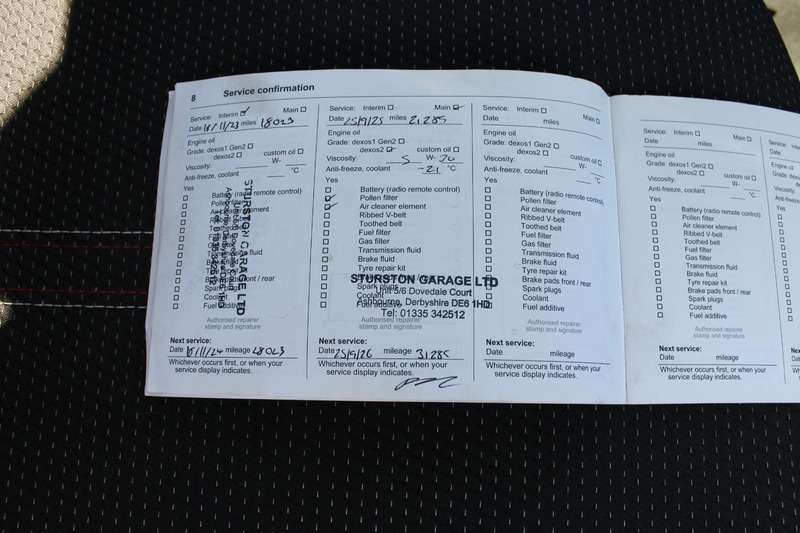 8 Service confirmation
Service: Interim Main
Date 18/11/23 miles 18023
Engine oil
Grade: dexos1 Gen2
dexos2 custom oil
Viscosity: W-
Anti-freeze, coolant °C
Yes
Battery (radio remote control)
Pollen filter
Air cleaner element
Ribbed V-belt
Toothed belt
Fuel filter
Gas filter
Transmission fluid
Brake fluid
Tyre repair kit
Brake pads front / rear
Spark plugs
Coolant
Fuel additive
STURSTON GARAGE LTD
Authorised repairer
stamp and signature
Next service:
Date 18/11/24 mileage 28023
Whichever occurs first, or when your
service display indicates.
Service: Interim Main
Date 25/9/25 miles 21285
Engine oil
Grade: dexos1 Gen2
dexos2 custom oil
Viscosity: 5 W- 20
Anti-freeze, coolant -21 °C
Yes
Battery (radio remote control)
Pollen filter
Air cleaner element
Ribbed V-belt
Toothed belt
Fuel filter
Gas filter
Transmission fluid
Brake fluid
Tyre repair kit
Spark plugs
Coolant
Fuel additive
STURSTON GARAGE LTD
Unit 5/6 Dovedale Court
Ashbourne, Derbyshire DE6 1HD
Tel: 01335 342512
Authorised repairer
stamp and signature
Next service:
Date 25/9/26 mileage 31285
Whichever occurs first, or when your
service display indicates.
Service: Interim Main
Date miles
Engine oil
Grade: dexos1 Gen2
dexos2 custom oil
Viscosity: W-
Anti-freeze, coolant °C
Yes
Battery (radio remote control)
Pollen filter
Air cleaner element
Ribbed V-belt
Toothed belt
Fuel filter
Gas filter
Transmission fluid
Brake fluid
Tyre repair kit
Brake pads front / rear
Spark plugs
Coolant
Fuel additive
Authorised repairer
stamp and signature
Next service:
Date mileage
Whichever occurs first, or when your
service display indicates.
Service: Interim Main
Date miles
Engine oil
Grade: dexos1 Gen2
dexos2 custom oil
Viscosity: W-
Anti-freeze, coolant °C
Yes
Battery (radio remote control)
Pollen filter
Air cleaner element
Ribbed V-belt
Toothed belt
Fuel filter
Gas filter
Transmission fluid
Brake fluid
Tyre repair kit
Brake pads front / rear
Spark plugs
Coolant
Fuel additive
Authorised repairer
stamp and signature
Next service:
Date mileage
Whichever occurs first, or when your
service display indicates.
Service:
Date
Engine oil
Grade: dexos
Viscosity:
Anti-freeze,
Yes
Next service:
Date
Whichever
service